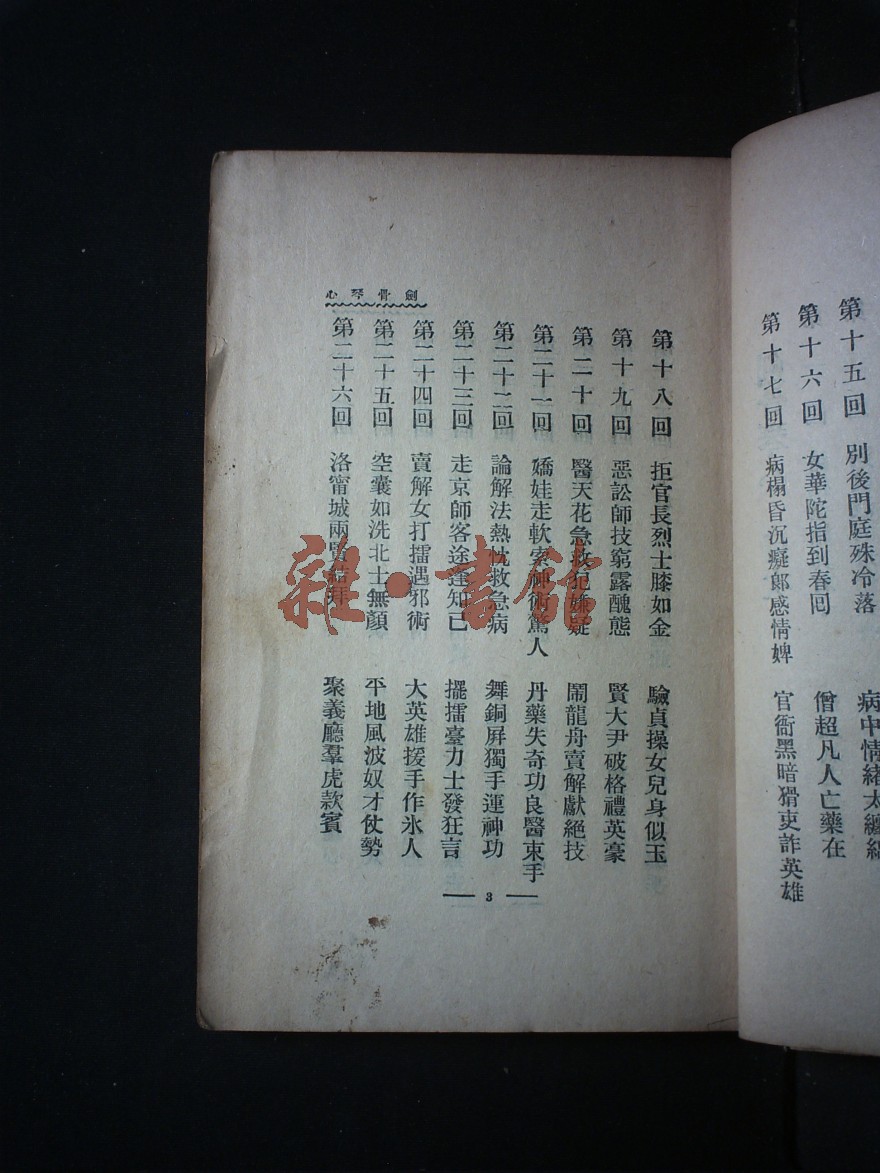 第十五回　別後門庭殊冷落　病中情緒太纏綿
第十六回　女華陀指到春回　僧超凡人亡藥在
第十七回　病榻昏沉癡郎感情婢　官衙黑暗猾吏詐英雄
劍骨琴心
第十八回　拒官長烈士膝如金　驗貞操女兒身似玉
第十九回　惡訟師技窮露醜態　賢大尹破格禮英豪
第二十回　醫天花急救犯嫌疑　鬧龍舟賣解獻絕技
第二十一回　嬌娃走軟索神術驚人　丹藥失奇功良醫束手
第二十二回　論解法熱忱救急病　舞銅屏獨手運神功
第二十三回　走京師客途逢知己　擺擂臺力士發狂言
第二十四回　賣解女打擂遇邪術　大英雄援手作氷人
第二十五回　空囊如洗北士無顏　平地風波奴才仗勢
第二十六回　洛甯城兩賢結拜　聚義廳羣虎款賓
3
雜·書館